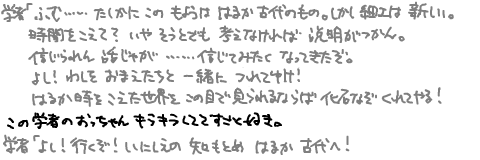 学者「ふむ…… たしかに この もようは はるか古代のもの。しかし 細工は 新しい。
時間をこえて? いや そうとでも 考えなければ 説明がつかん。
信じられん 話じゃが ……信じてみたく なってきたぞ。
よし! わしを おまえたちと 一緒に つれてゆけ!
はるか時を こえた世界を この目で見られるならば 化石なぞ くれてやる!
この学者のおっちゃん キラキラしててすごく好き。
学者「よし! 行くぞ! いにしえの 知もとめ はるか 古代へ!